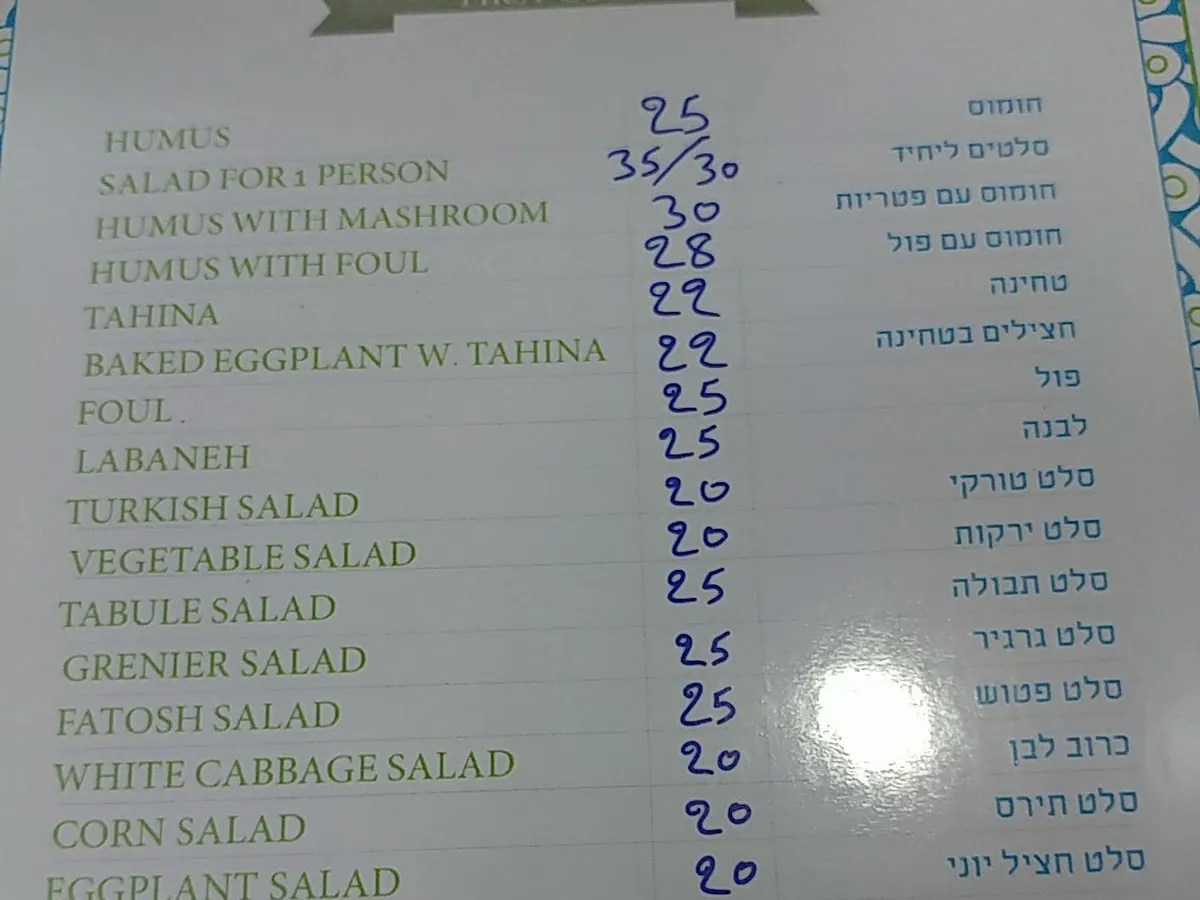 HUMUS 25 חומוס
SALAD FOR 1 PERSON 35/30 סלטים ליחיד
HUMUS WITH MASHROOM 30 חומוס עם פטריות
HUMUS WITH FOUL 28 חומוס עם פול
TAHINA 22 טחינה
BAKED EGGPLANT W. TAHINA 22 חצילים בטחינה
FOUL . 25 פול
LABANEH 25 לבנה
TURKISH SALAD 20 סלט טורקי
VEGETABLE SALAD 20 סלט ירקות
TABULE SALAD 25 סלט תבולה
GRENIER SALAD 25 סלט גרגיר
FATOSH SALAD 25 סלט פטוש
WHITE CABBAGE SALAD 20 כרוב לבן
CORN SALAD 20 סלט תירס
EGGPLANT SALAD 20 סלט חציל יווני